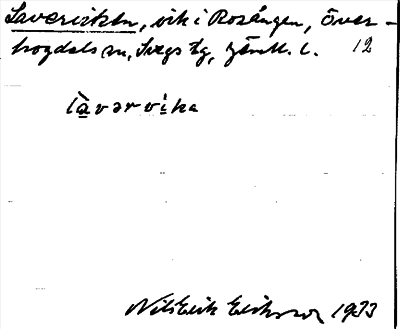 Laverviken, vik i Rosången, Över-
hogdals sn, Svegs tg, Jämtl. l. 12
làvərvika
Nils Erik Eriksson 1933